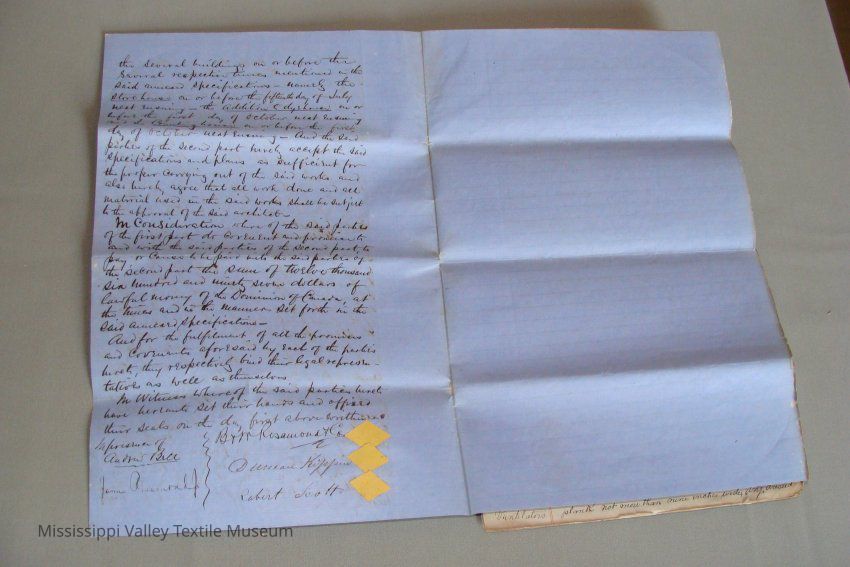 the several buildings on or before the
several respective times mentioned in the
said annexed specifications – namely the
storehouse on or before the fifteenth day of July
next ensuing – the addition & dyehouse on or
before the first day of October next ensuing
and the on or before the first
day of October next ensuing – And the said
parties of the second part hereby accept the said
specifications and plans as sufficient for
the proper carrying out of the said works and
also hereby agree that all work done and all
material used in the said works shall be subject
to the approval of the said architect –
In Consideration whereof the said parties
of the first part do covenant and promise to
and with the said parties of the second part, to
pay or cause to be paid unto the said parties of
the second part the sum of twelve thousand
six hundred and ninety seven dollars of
lawful money of the Dominion of Canada, at
the times and in the manner set forth in the
said annexed specifications –
And for the fulfilment of all the promises
and covenants aforesaid by each of the parties
hereto, they respectively bind their legal represen-
tatives as well as themselves
In Witness whereof the said parties hereto
have hereunto set their hands and affixed
their seals on the day first above written
In presence of
Andrew Bell
James
B & W Rosamond & Co
Duncan Kippin
Robert Scott
Ventilators plank not more than nine inches wide
Mississippi Valley Textile Museum